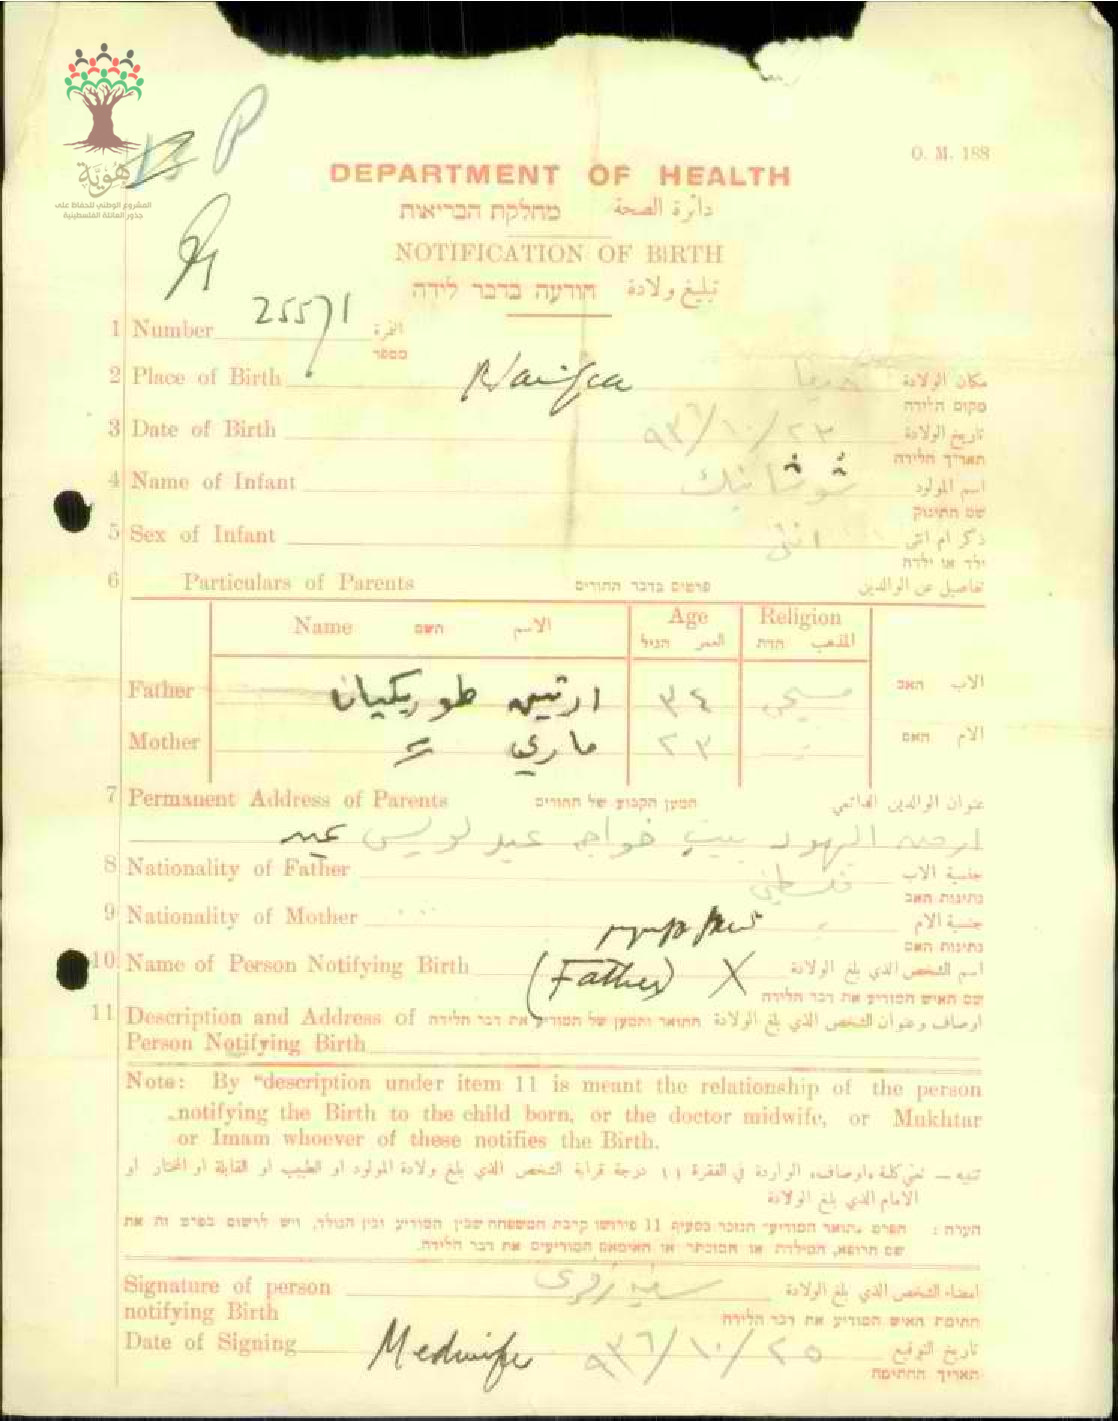 هُوِيَّة
المشروع الوطني للحفاظ على
جذور العائلة الفلسطينية
O. M. 188
DEPARTMENT OF HEALTH
מחלקת הבריאות دائرة الصحة
NOTIFICATION OF BIRTH
הודעה בדבר לידה تبليغ ولادة
1 Number 25571 النمرة
מספר
2 Place of Birth Haifa حيفا مكان الولادة
מקום הלידה
3 Date of Birth ٢٣/١٠/٩٣٦ تاريخ الولادة
תאריך הלידה
4 Name of Infant شوشانيك اسم المولود
שם התינוק
5 Sex of Infant انثى ذكر ام انثى
ילד או ילדה
6 Particulars of Parents פרטים בדבר ההורים تفاصيل عن الوالدين
Name השם الاسم Age Religion
הגיל العمر הדת المذهب
Father ارتيس طوريكيان ٣٤ مسيحي האב الاب
Mother ماري = ٢٣ האם الام
7 Permanent Address of Parents המען הקבוע של ההורים عنوان الوالدين الدائمي
ارض اليهود بيت خواجه عيد لويس عيد
8 Nationality of Father فلسطيني جنسية الاب
נתינות האב
9 Nationality of Mother جنسية الام
נתינות האם
10 Name of Person Notifying Birth (Father) X اسم الشخص الذي بلغ الولادة
שם האיש המודיע את דבר הלידה
11 Description and Address of התואר והמען של המודיע את דבר הלידה اوصاف وعنوان الشخص الذي بلغ الولادة
Person Notifying Birth
Note: By "description under item 11 is meant the relationship of the person
notifying the Birth to the child born, or the doctor midwife, or Mukhtar
or Imam whoever of these notifies the Birth.
تنبيه — تعني كلمة «اوصاف» الواردة في الفقرة ١١ درجة قرابة الشخص الذي بلغ ولادة المولود او الطبيب او القابلة او المختار او
الامام الذي بلغ الولادة
הערה: הפרט "תואר המודיע" הנזכר בסעיף 11 פירושו קרבת המשפחה שבין המודיע ובין הנולד, ויש לרשום בפרט זה את
שם הרופא, המילדת או המוכתר או האימאם המודיעים את דבר הלידה.
Signature of person امضاء الشخص الذي بلغ الولادة
notifying Birth חתימת האיש המודיע את דבר הלידה
Date of Signing Medwife ٢٥/١٠/٩٣٦ تاريخ التوقيع
תאריך החתימה